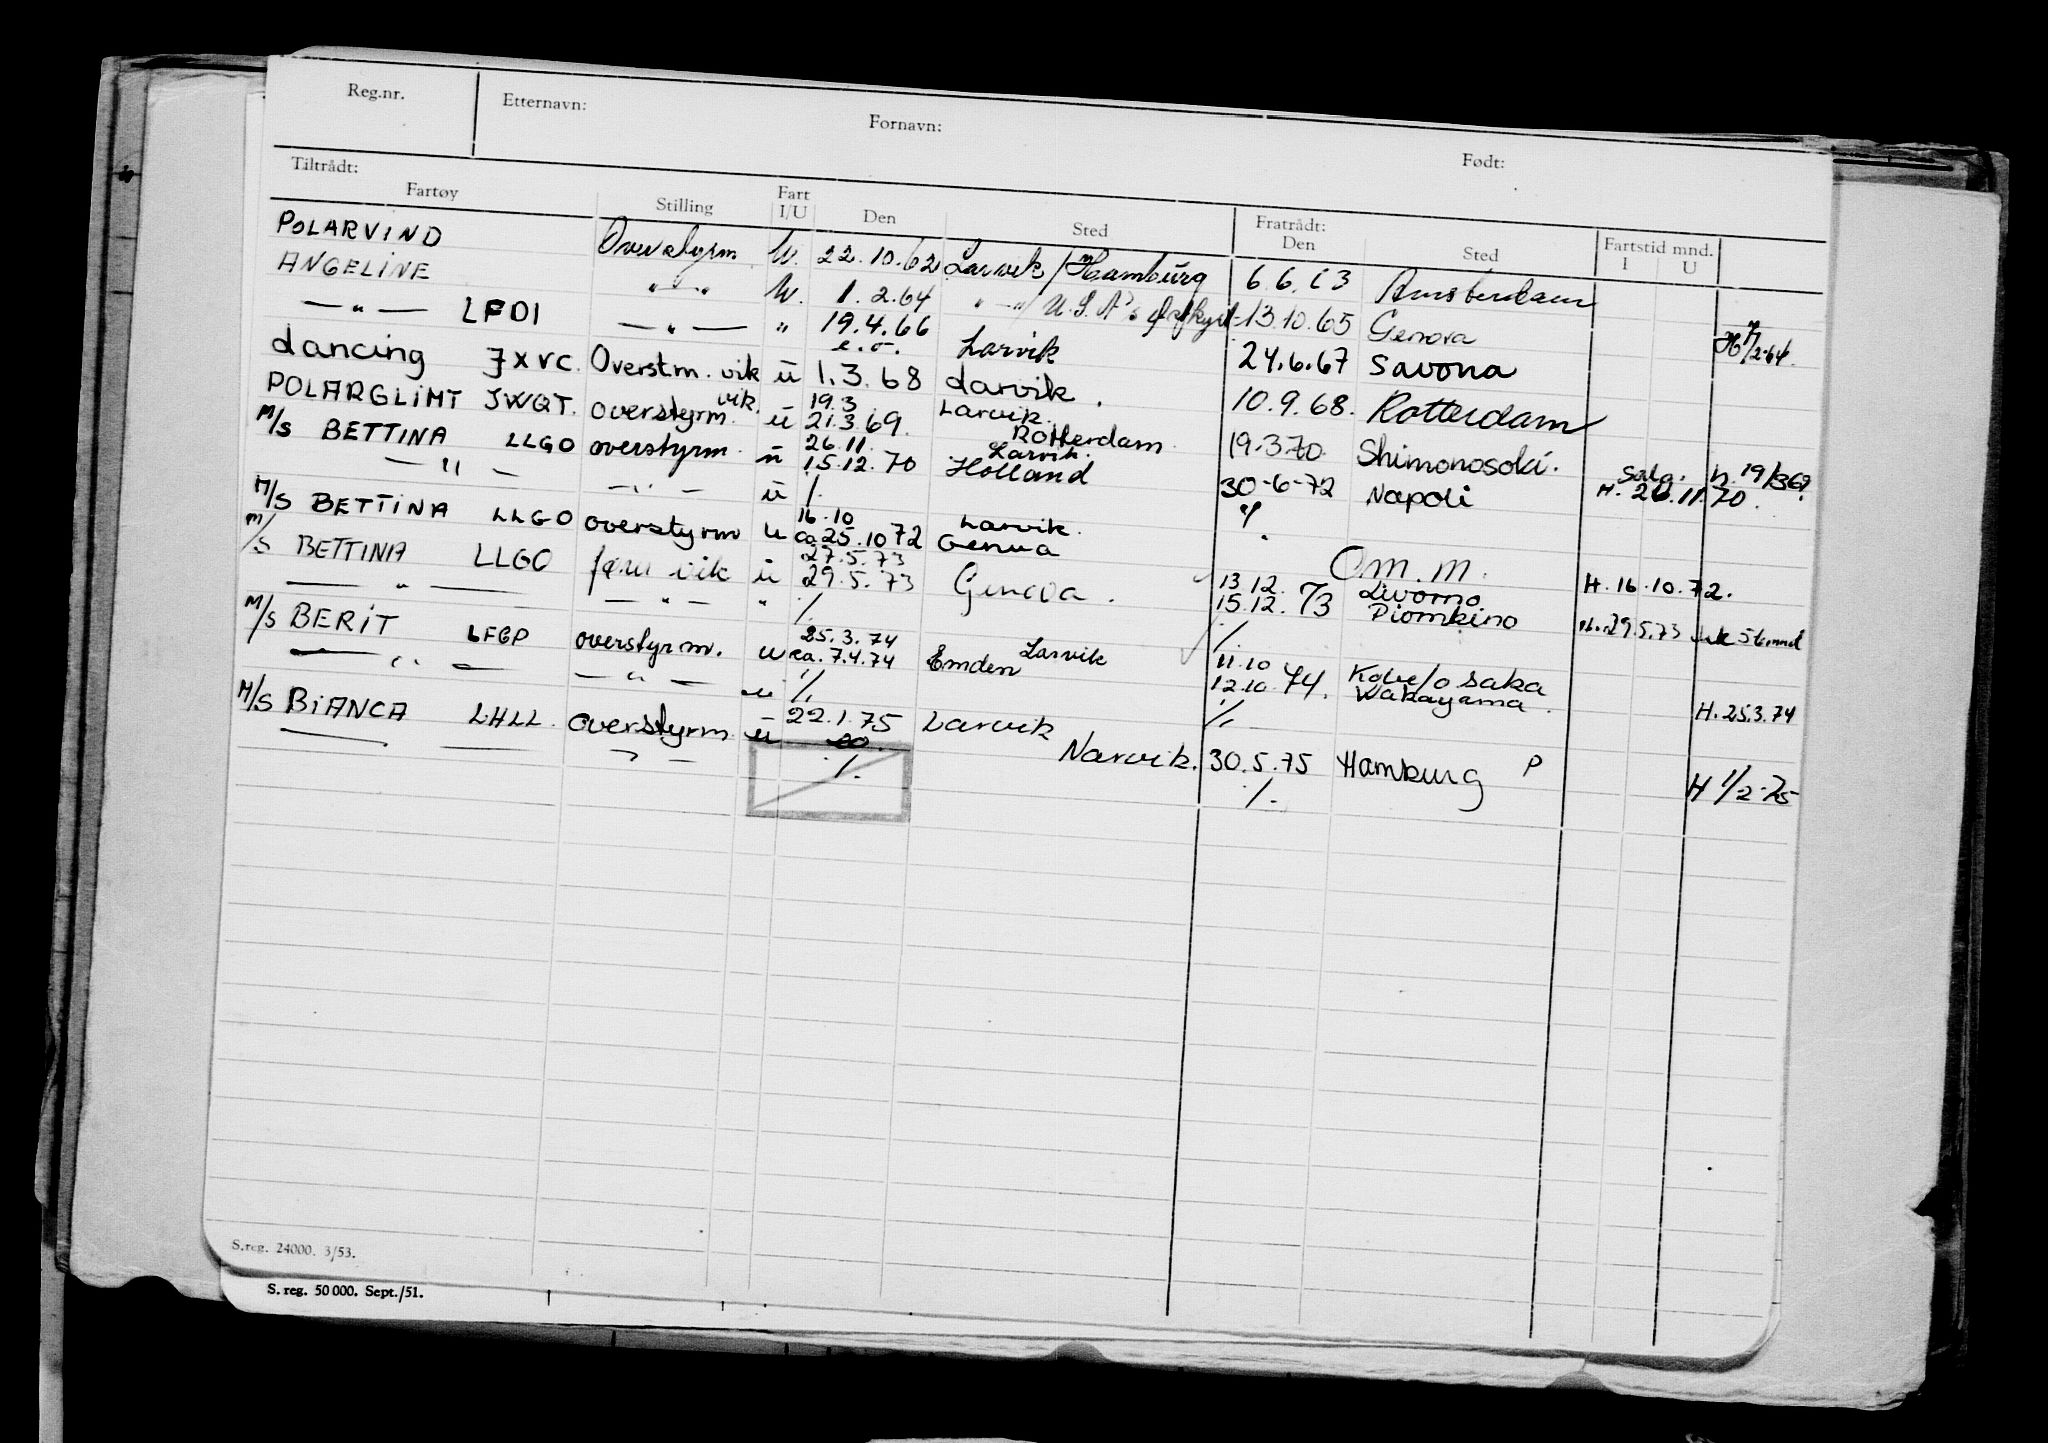 Reg.nr. Etternavn: Fornavn: Født:
Tiltrådt: Fratrådt: Fartstid mnd.
Fartøy Stilling Fart I/U Den Sted Den Sted I U
POLARVIND Overstyrm. U. 22.10.62 Larvik/Hamburg 6.6.63 Amsterdam
ANGELINE — " — U. 1.2.64 — " — U.S.A's 13.10.65 Genova
— " — LFDI — " — " 19.4.66 e.o. Larvik 24.6.67 Savona
dancing JXVC. Overstm. vik ū 1.3.68 Larvik. 10.9.68. Rotterdam
POLARGLIMT JWQT. overstyrm. vik. ū 19.3 21.3.69. Larvik. Rotterdam. 19.3.70. Shimonosoki. Salg.
M/S BETTINA LLGO overstyrm. ū 26.11. 15.12.70 Larvik. Holland 30-6-72 Napoli H. 26.11.70.
— " — — " — ū ./. ./.
M/S BETTINA LLGO overstyrm u 16.10 ca 25.10 72 Larvik. Genua O.m.m. H. 16.10.72.
M/S BETTINA LLGO vik ū 27.5.73 29.5.73 Genova. 13.12. 15.12. 73 Livorno Piombino H. 29.5.73
— " — — " — " ./. ./.
M/S BERIT LFGP overstyrm. u 25.3.74 ca. 7.4.74 Larvik Emden 11.10 12.10. 74. Kobe/Osaka Wakayama. H. 25.3.74
— " — — " — u ./. ./.
M/S BIANCA LHLL. overstyrm ū 22.1.75 Larvik Narvik. 30.5.75 Hamburg P H 1/2-75
— — " — ./. ./.
S.reg. 24000. 3/53.
S. reg. 50 000. Sept./51.